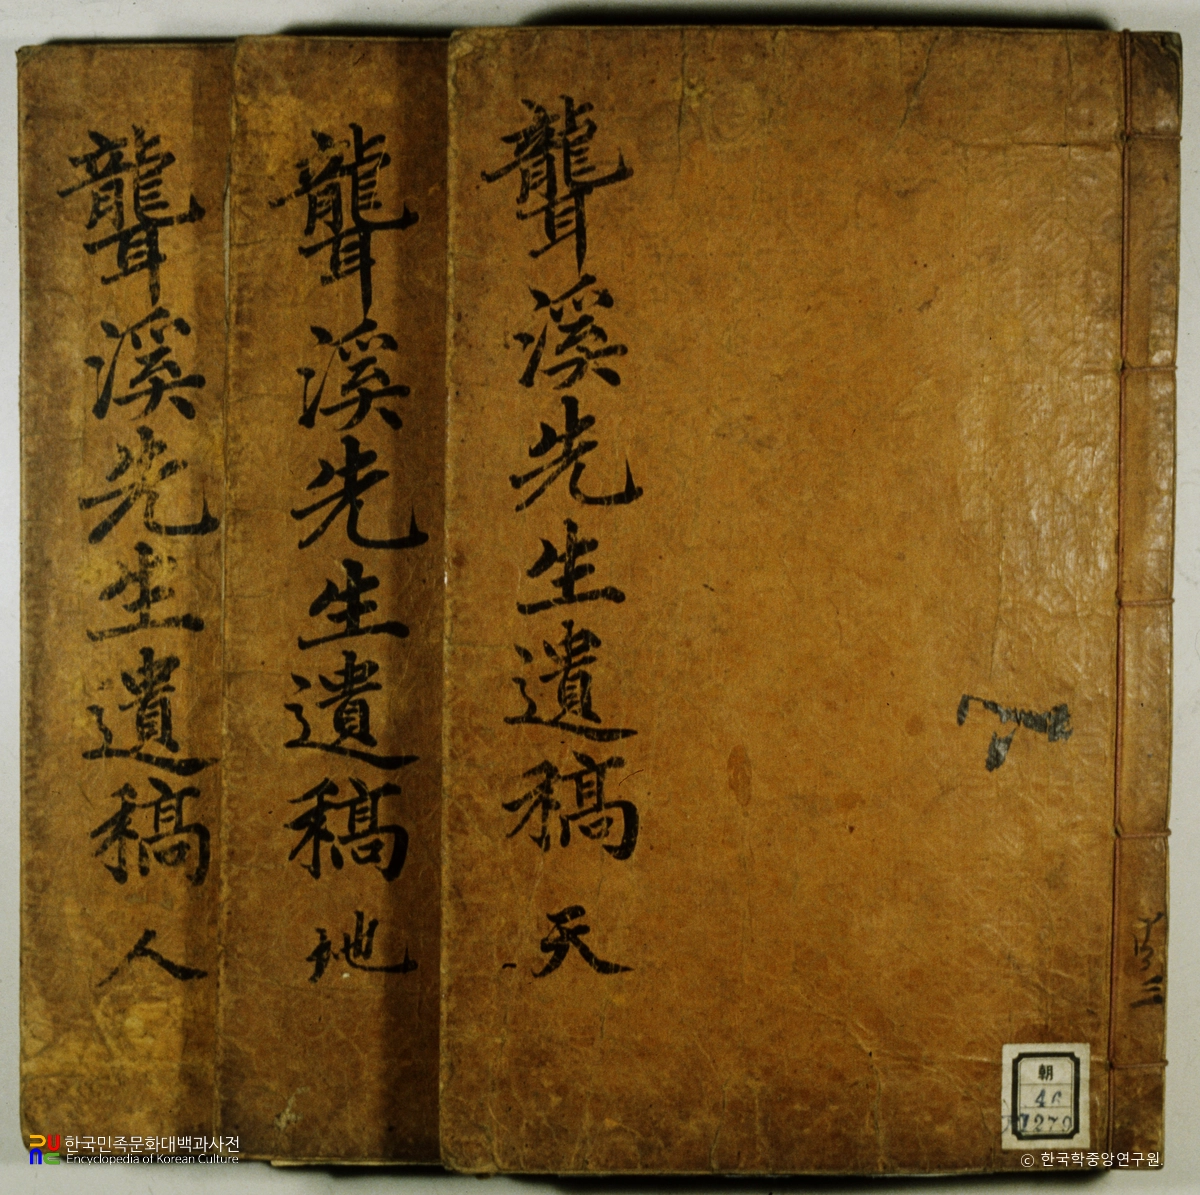 聾溪先生遺稿 天
聾溪先生遺稿 地
聾溪先生遺稿 人
共三
朝
46
한국민족문화대백과사전
Encyclopedia of Korean Culture
ⓒ 한국학중앙연구원